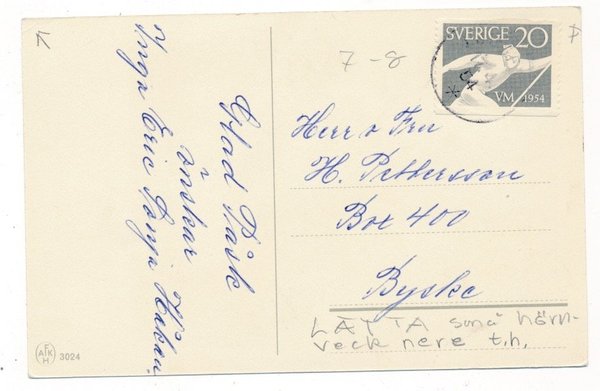 7-8
SVERIGE 20
VM 1954
54
Glad Påsk
önskar
Inga Eric Sonja Håkan
Herr o Fru
H. Pettersson
Box 400
Byske
LÄTTA små hörn-
veck nere t.h.
AFKH
3024